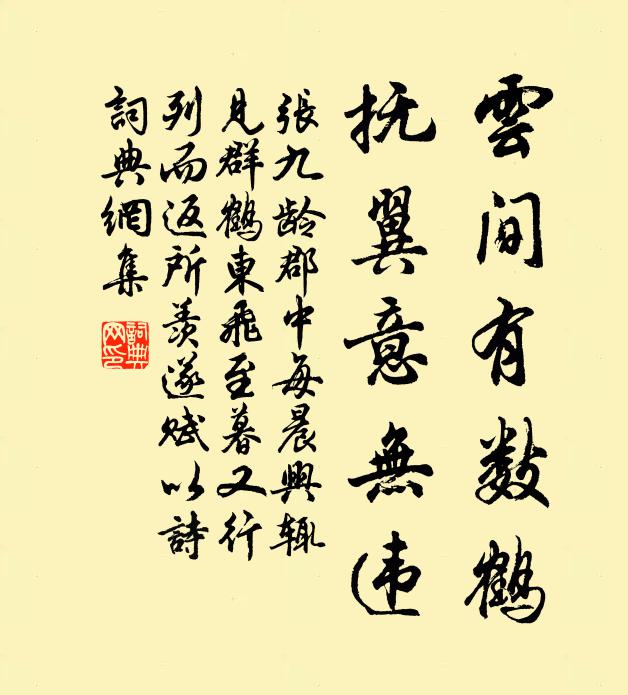 雲間有数鶴
抚翼意無违
張九龄郡中每晨興辄
見群鶴東飛至暮又行
列而返所羨遂赋以詩
詞典網集
詞典
网印